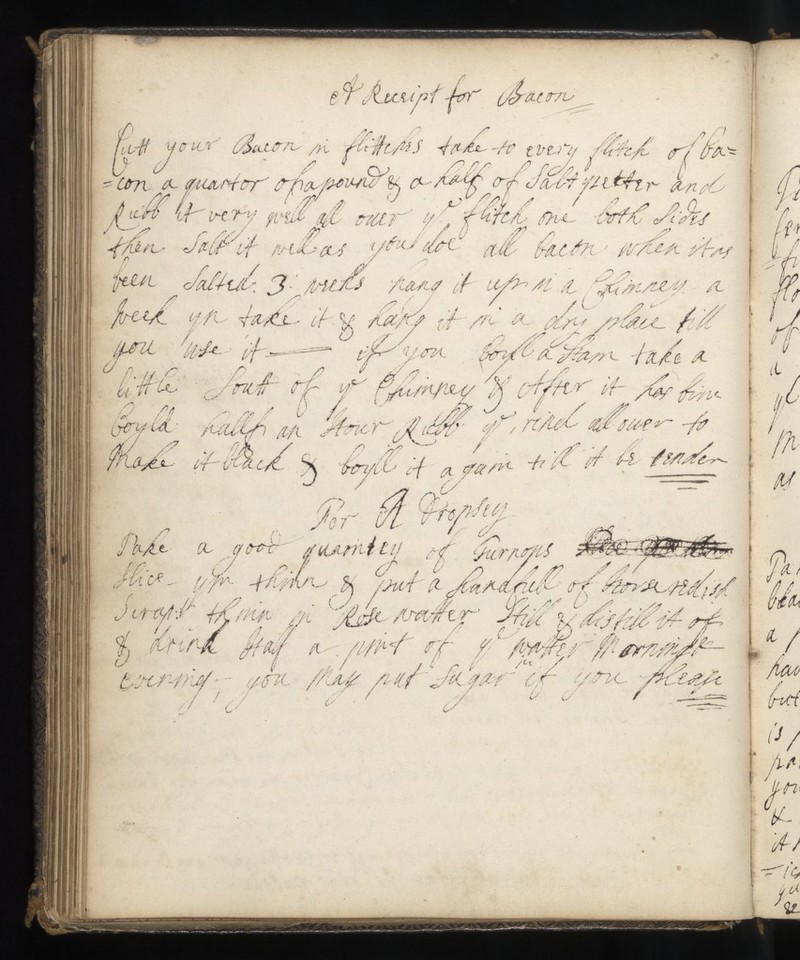 A Receipt for Bacon
Cutt your Bacon in flitches take to every flitch of ba=
=con a quartor of a pound & a half of Saltpetter and
Rubb it very well all over ye flitch one both Sides
then Salt it well as you doe all bacon when it as
been Salted 3: weeks hang it up in a Chimney a
Week yn take it & hang it in a dry place till
you use it — if you boyl a Ham take a
little Soutt of ye Chimney & After it has binn
boyld hallf an Hour Rubb ye rind all over to
Make it black & boyll it again till it be tender
For A Dropsey
Take a good quantety of Turnops
Slice ym thinn & put a handfull of horse redish
Scrapt thinn in Rose watter Still & distill it of
& drink Half a pint of ye watter Morning &
evening, you May put Sugar in if you please